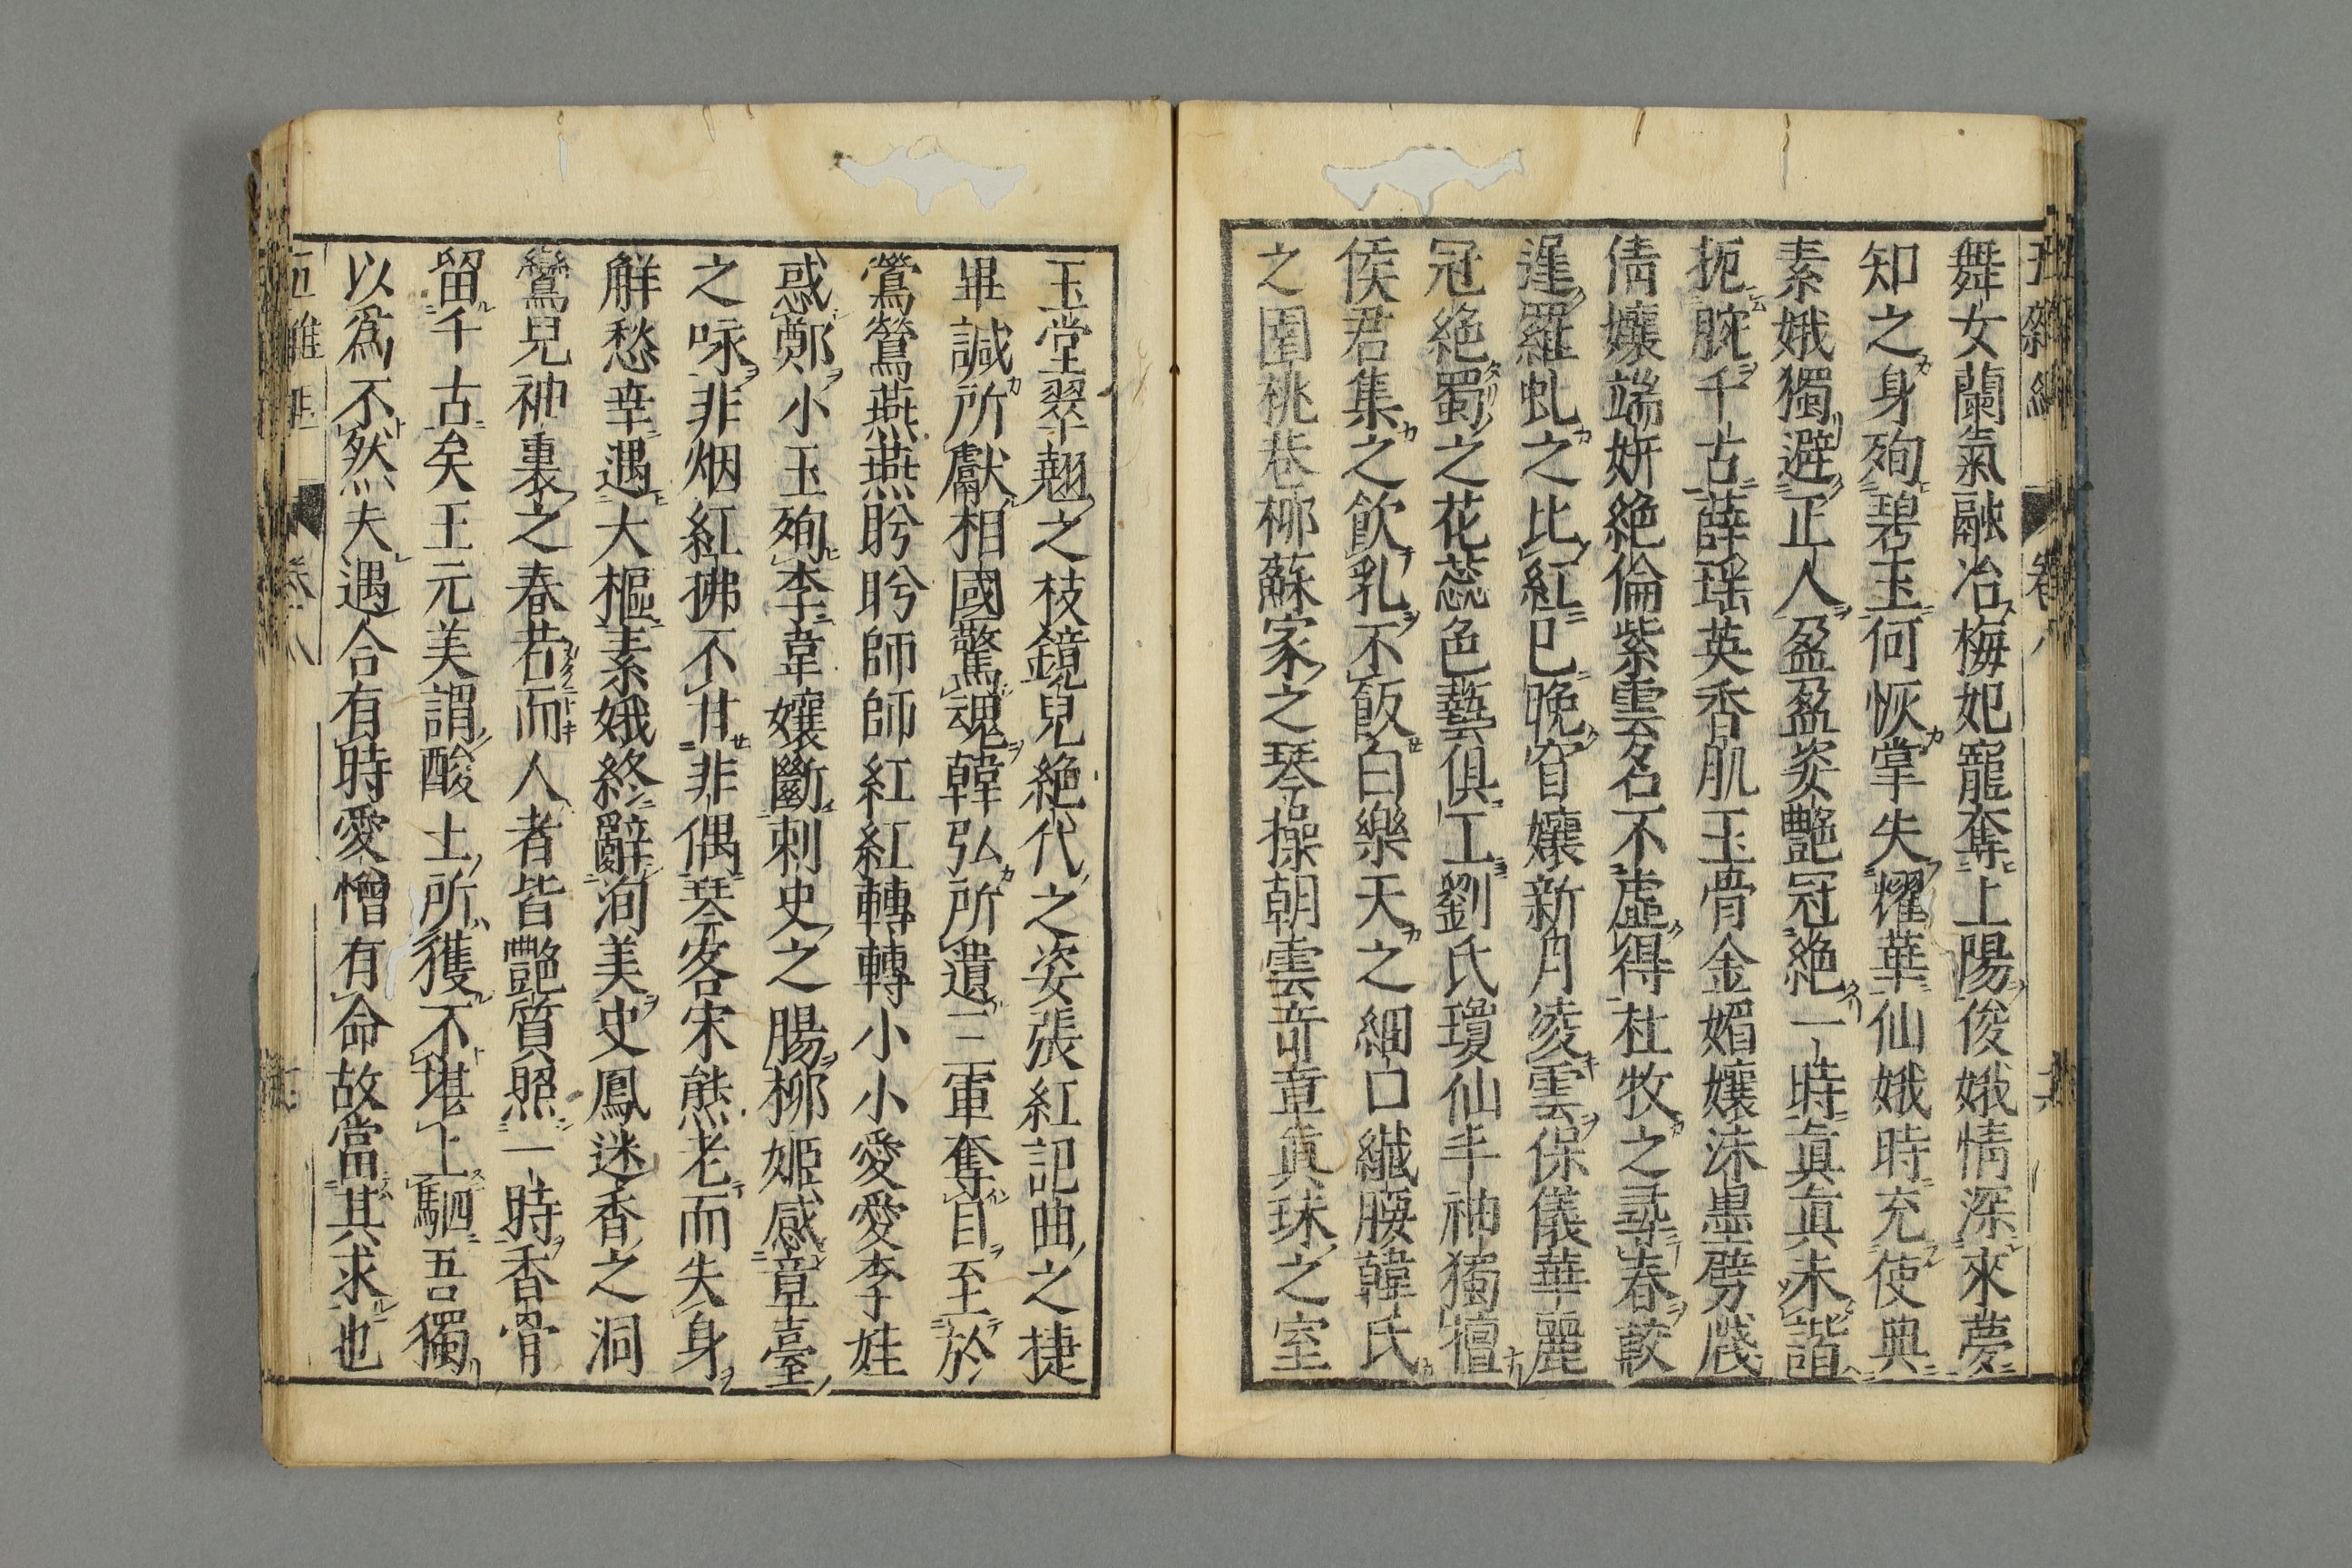 舞女蘭氣融冶梅妃寵奪上陽俊娥情深來夢
知之身殉碧玉何恢掌失耀華仙娥時充使典
素娥獨避正人盈盈姿艷冠絶一時眞眞未諧
扼腕千古薛瑶英香肌玉骨金媚孃沫墨劈牋
倩孃端妍絶倫紫雲名不虛得杜牧之尋春較
遲羅虬之比紅巳晚窅孃新月凌雲保儀華麗
冠絶蜀之花蕊色藝俱工劉氏瓊仙手神獨檀
侯君集之飲乳不飯白樂天之細口纎腰韓氏
之園桃巷柳蘇家之琴操朝雲竒章眞珠之室
玉堂翠翹之枝鏡兒絶代之姿張紅記曲之捷
畢諴所獻相國驚魂韓弘所遺三軍奪目至於
鶯鶯燕燕盻盻師師紅紅轉轉小小愛愛李娃
惑鄭小玉殉李韋孃斷刺史之腸柳姬感章臺
之咏非烟紅拂不甘非偶琴客宋熊老而失身
觧愁幸遇大樞素娥終辭洵美史鳳迷香之洞
鸞兒神裏之春若而人者皆艷質照一時香骨
留千古矣王元美謂酸士所獲不堪上駟吾獨
以爲不然夫遇合有時愛憎有命故當其求也
五雜組 卷八